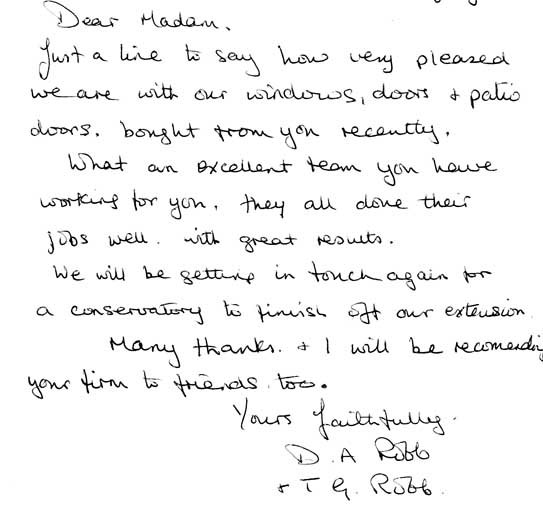 Dear Madam,
Just a line to say how very pleased
we are with our windows, doors + patio
doors. bought from you recently.
What an excellent team you have
working for you, they all done their
jobs well. with great results.
We will be getting in touch again for
a conservatory to finish off our extension.
Many thanks. + I will be recomending
your firm to friends. too.
Yours faithfully.
D. A Robb
+ T G. Robb.